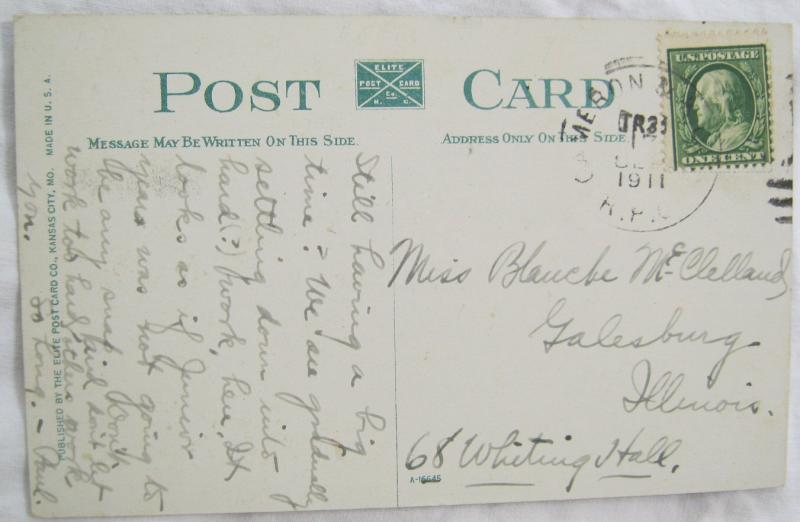 POST CARD
ELITE
POST CARD
Co.
K. C.
MESSAGE MAY BE WRITTEN ON THIS SIDE.
ADDRESS ONLY ON THIS SIDE.
U.S. POSTAGE
ONE CENT
TR 33
1911
R.P.O.
Still having a big
time. We are gradually
settling down into
hard (?) work, here. It
looks as if Junior
year was not going to
be any snap. Don't
work too hard, and don't let
work
you.
So Long. – Paul.
Miss Blanche McClelland,
Galesburg
Illinois.
68 Whiting Hall.
A-16645
PUBLISHED BY THE ELITE POST CARD CO., KANSAS CITY, MO. MADE IN U. S. A.